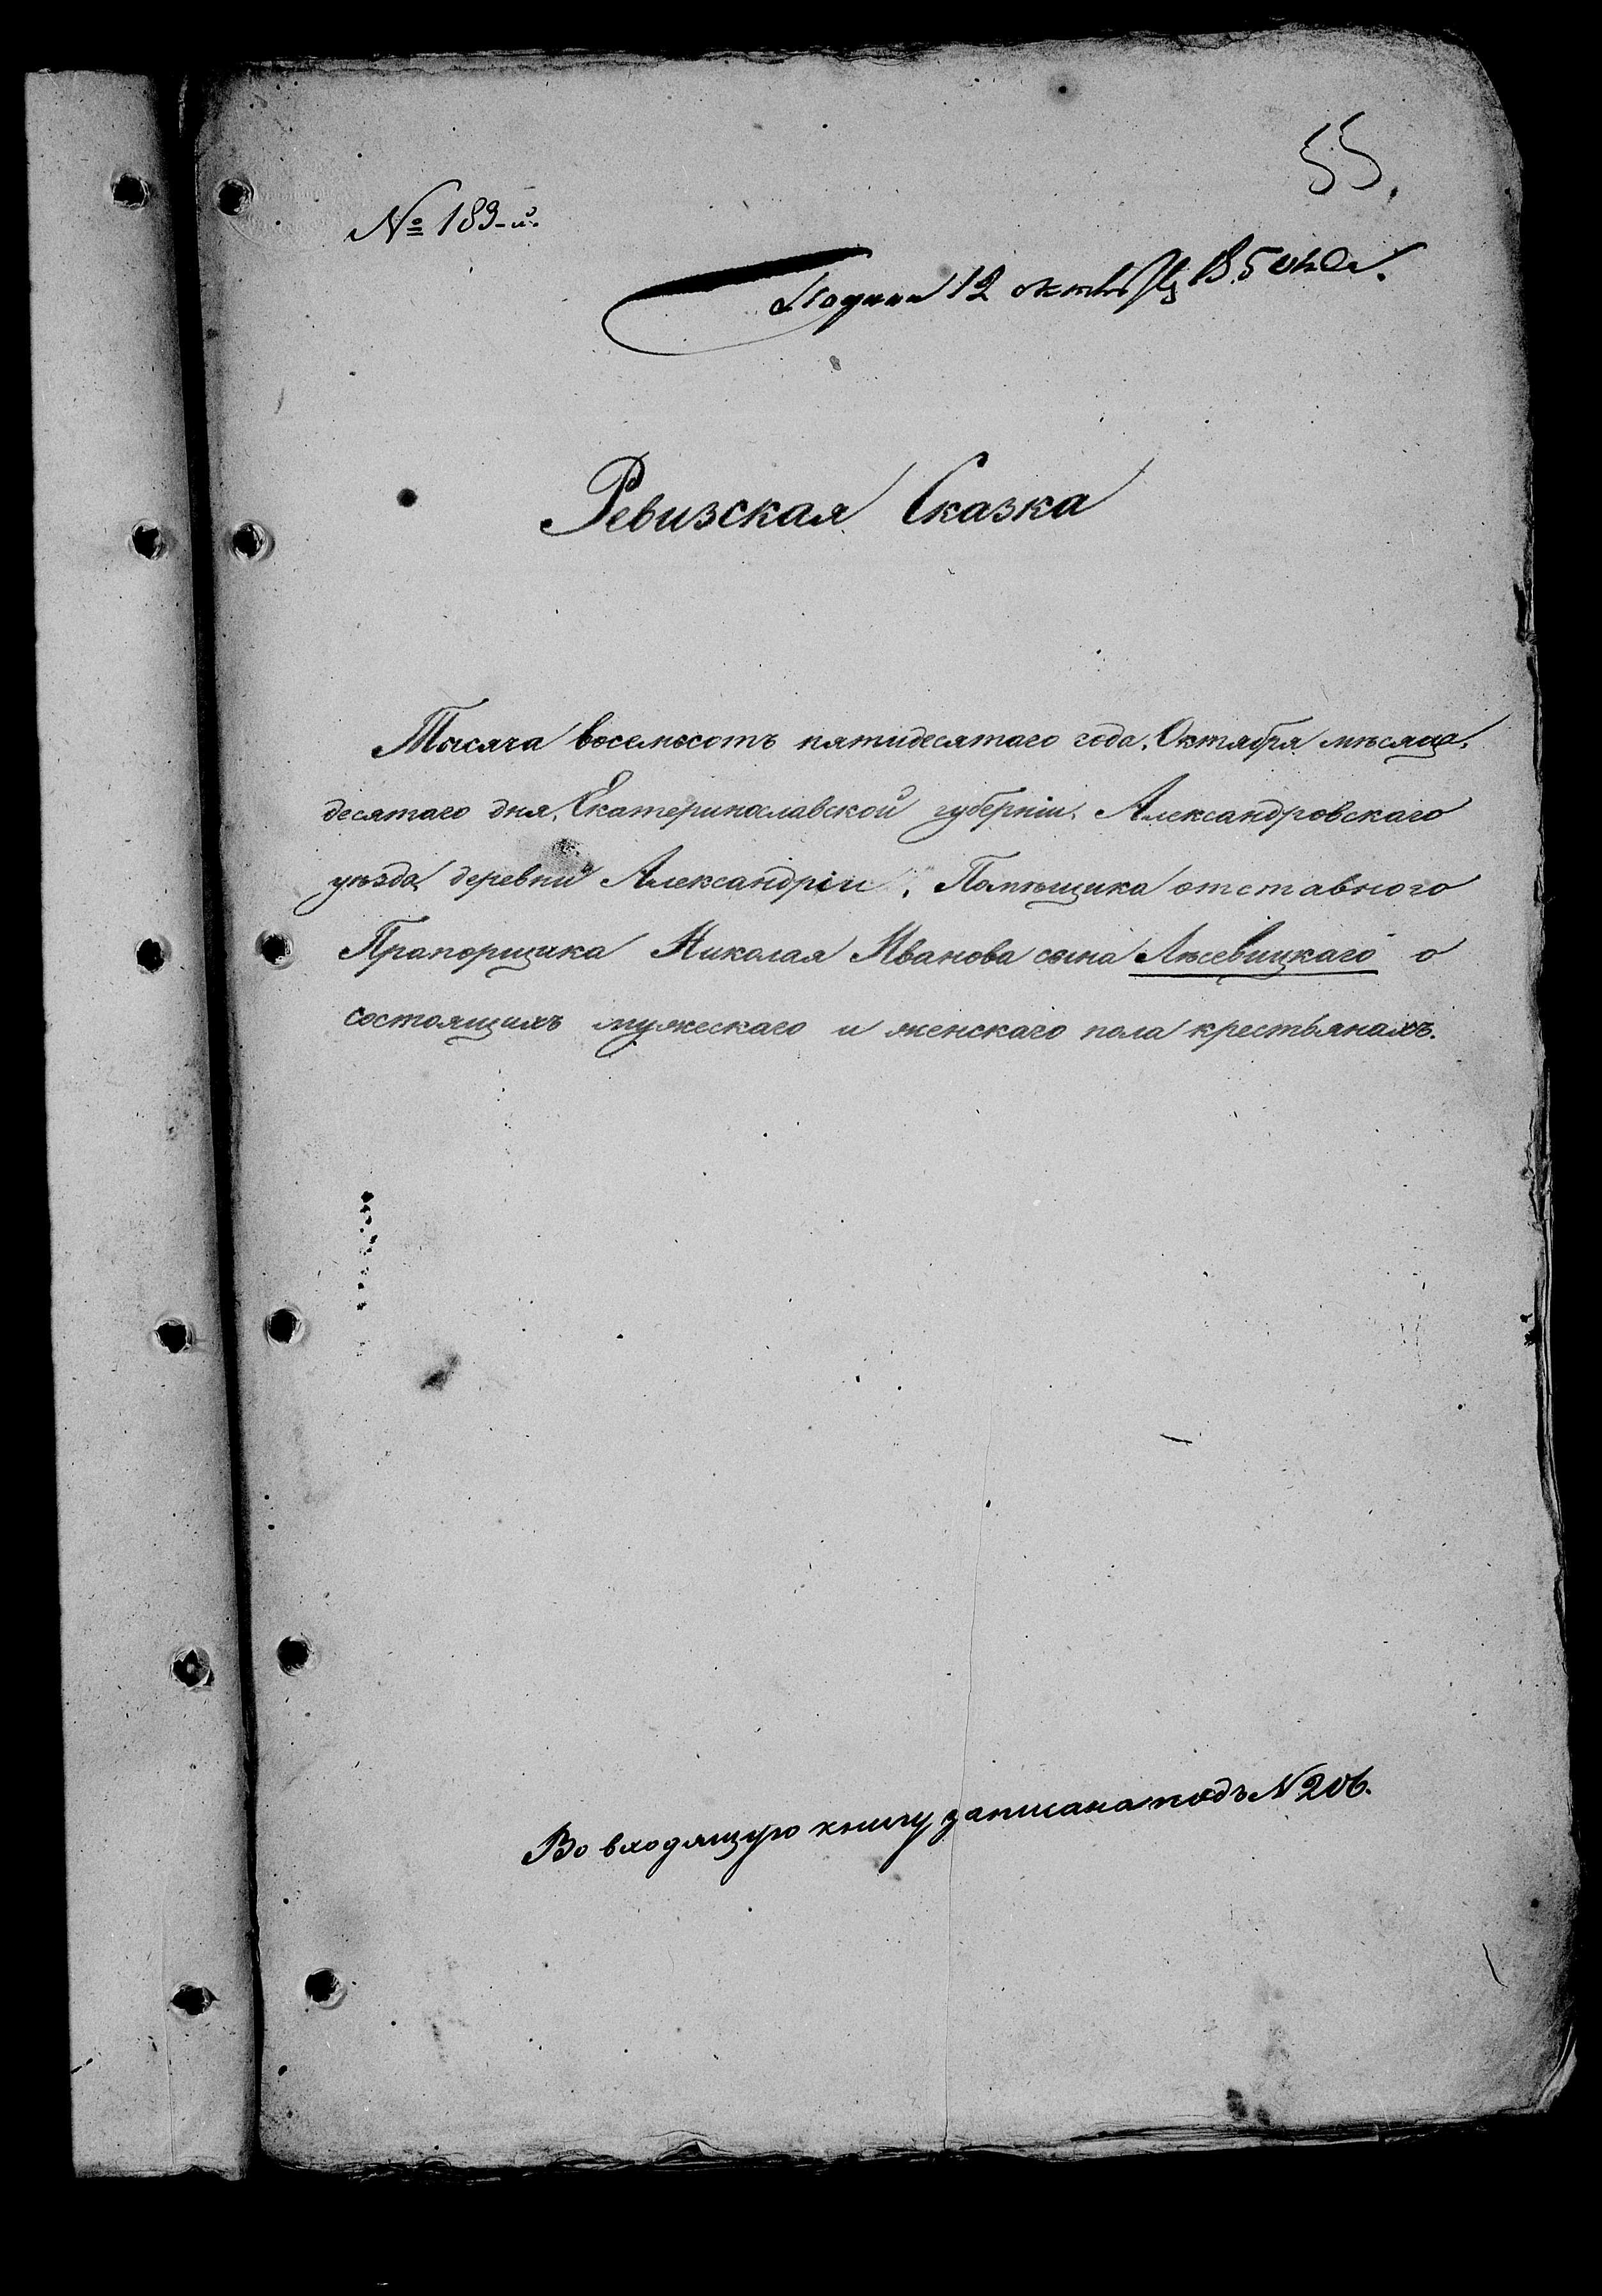 55.
№ 189-й.
Подана 12 октября 1850 года.
Ревизская Сказка
Тысяча восемьсотъ пятидесятаго года, Октября мѣсяца,
десятаго дня, Екатеринославской губерніи, Александровскаго
уѣзда, деревни Александріи, Помѣщика отставного
Прапорщика Николая Иванова сына Лѣсевицкаго о
состоящихъ мужескаго и женскаго пола крестьянахъ.
Во входящую книгу записана подъ N 206.